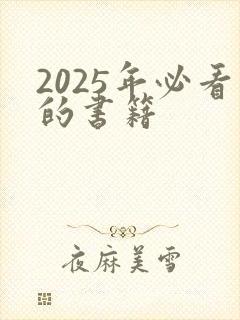 2025年必看
的书籍
夜麻美雪